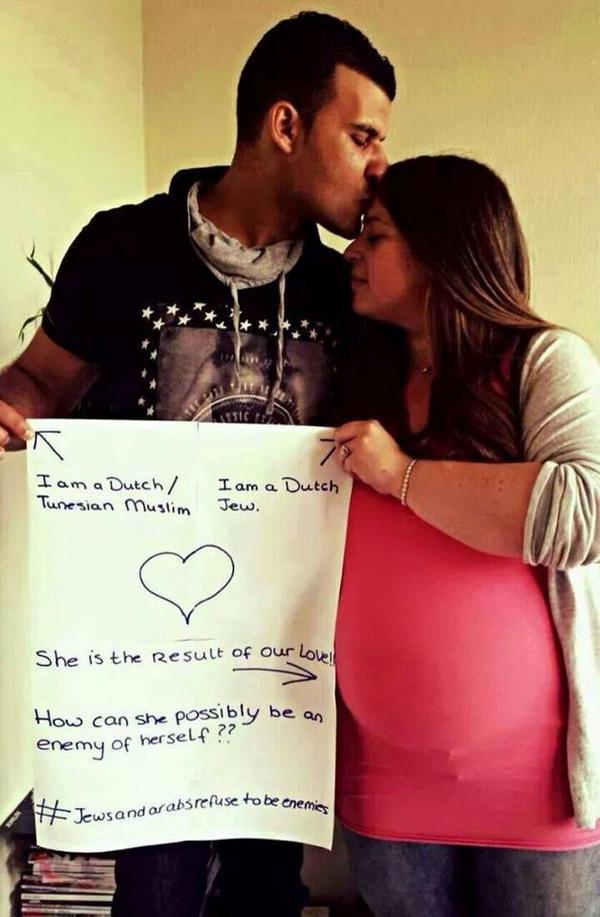 I am a Dutch/
Tunesian Muslim
I am a Dutch
Jew.
She is the Result of our Love!!
How can she possibly be an
enemy of herself??
#Jewsandarabsrefusetobeenemies